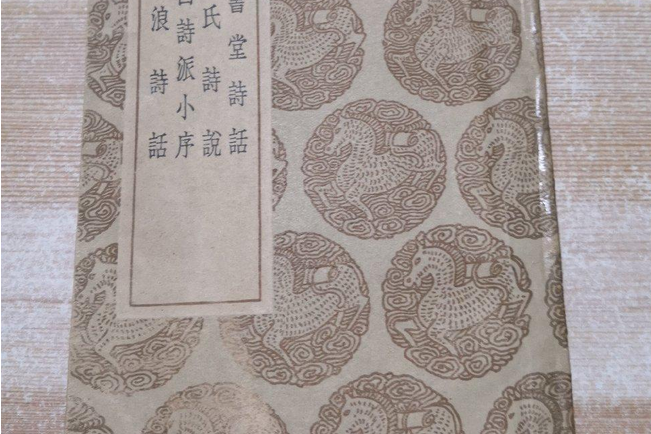 書堂詩話
氏詩說
詩派小序
浪詩話